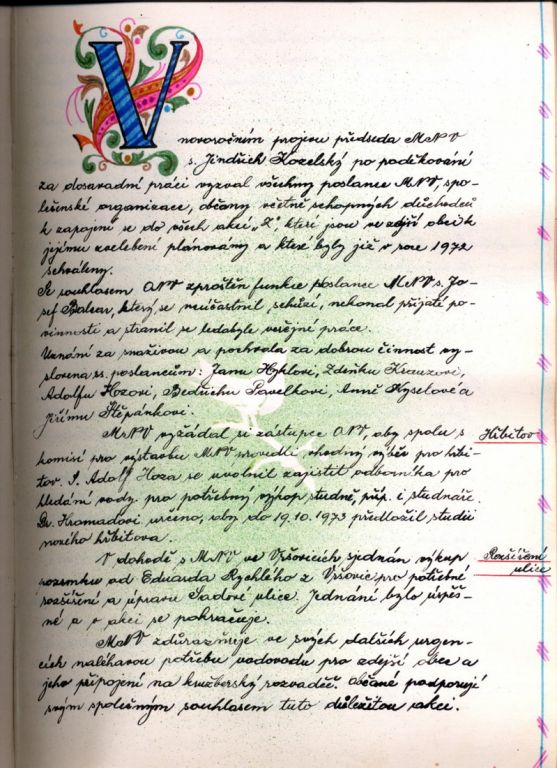 V
novoročním projevu předseda MNV
s. Jindřich Kozelský po poděkování
za dosavadní práci vyzval všechny poslance MNV, spo-
lečenské organizace, občany včetně schopných důchodců
k zapojení se do všech akcí „Z“, které jsou ve zdejší obci k
jejímu zvelebení plánovány a které byly již v roce 1972
schváleny.
Se souhlasem ONV zproštěn funkce poslance MNV s. Jo-
sef Balcar, který se neúčastnil schůzí, nekonal přijaté po-
vinnosti a stranil se ledabyle veřejné práce.
Uznání za snaživou a pochvala za dobrou činnost vy-
slovena ss. poslancům: Janu Hyklovi, Zdeňku Krauzovi,
Adolfu Hozovi, Bedřichu Pavelkovi, Anně Kyselové a
Jiřímu Štěpánkovi.
MNV vyžádal si zástupce ONV, aby spolu s
komisí pro výstavbu MNV provedli vhodný výběr pro hřbi-
tov. S. Adolf Hoza se uvolnil zajistit odborníka pro
hledání vody pro potřebný výkop studně, příp. i studnaře.
Dr. Hromadovi určeno, aby do 19. 10. 1973 předložil studii
nového hřbitova.
Hřbitov
V dohodě s MNV ve Vršovicích sjednán výkup
pozemku od Eduarda Rychlého z Vršovic pro potřebné
rozšíření a úpravu Sadové ulice. Jednání bylo úspěš-
né a v akci se pokračuje.
Rozšíření
ulice
MNV zdůrazňuje ve svých dalších urgen-
cích naléhavou potřebu vodovodu pro zdejší obec a
jeho připojení na kružberský rozvaděč. Občané podporují
svým společným souhlasem tuto důležitou akci.